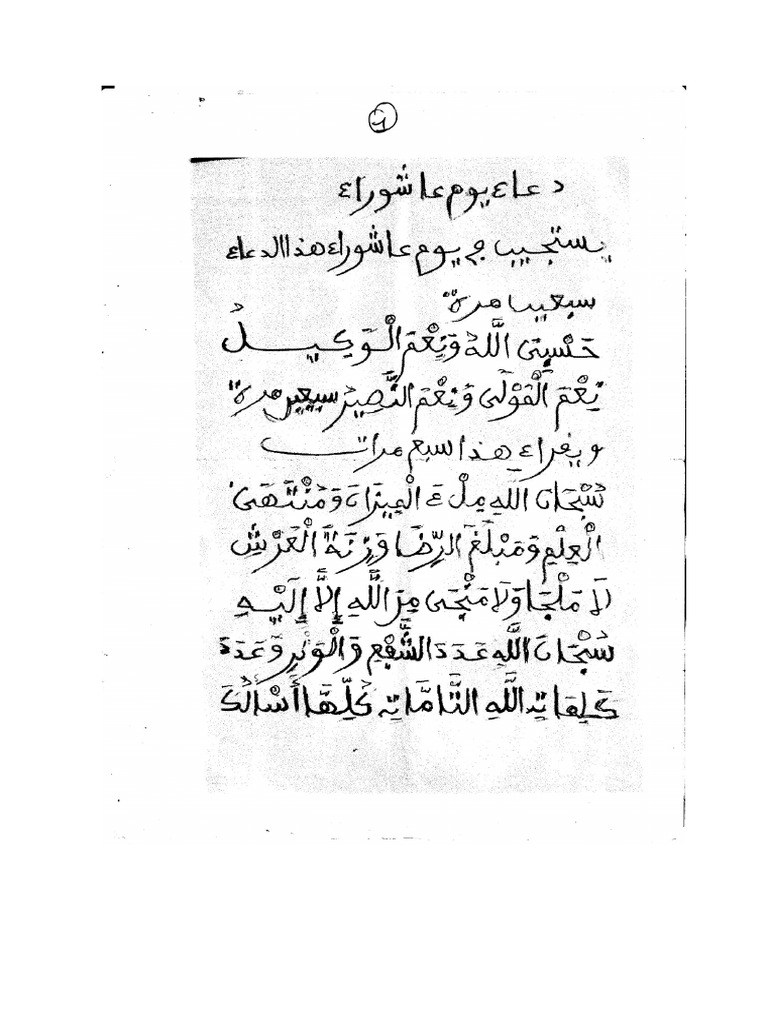 دعاء يوم عاشوراء
يستجيب في يوم عاشوراء هذا الدعاء
سبعين مرة
حَسْبِيَ اللَّهُ وَنِعْمَ الْوَكِيلُ
نِعْمَ الْمَوْلَى وَنِعْمَ النَّصِيرُ سبعين مرة
ويقراء هذا سبع مرات
سُبْحَانَ اللهِ مِلْءَ الْمِيزَانِ وَمُنْتَهَى
الْعِلْمِ وَمَبْلَغَ الرِّضَا وَزِنَةَ الْعَرْشِ
لَا مَلْجَا وَلَا مَنْجَى مِنَ اللَّهِ إِلَّا إِلَيْهِ
سُبْحَانَ اللَّهِ عَدَدَ الشَّفْعِ وَالْوَتْرِ وَعَدَدَ
كَلِمَاتِ اللَّهِ التَّامَّاتِ كُلِّهَا أَسْأَلُكَ